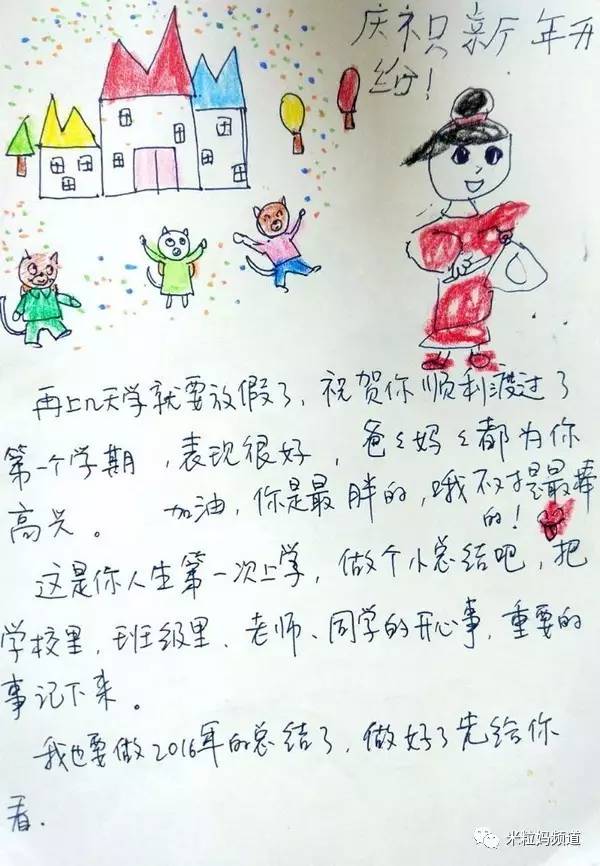 庆祝新年开
纷！
再上几天学就要放假了，祝贺你顺利渡过了
第一个学期，表现很好，爸々妈々都为你
高兴。加油，你是最胖的，哦不对是最棒
的！
这是你人生第一次上学，做个小总结吧，把
学校里，班级里、老师、同学的开心事，重要的
事记下来。
我也要做2016年的总结了，做好了先给你
看.
米粒妈频道